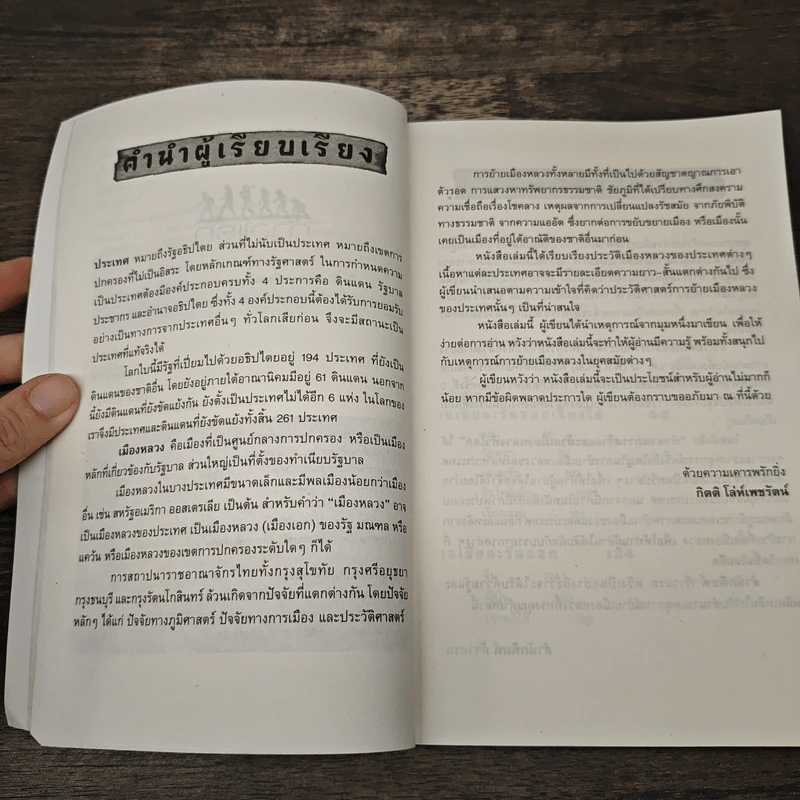 คำนำผู้เรียบเรียง
ประเทศ หมายถึงรัฐอธิปไตย ส่วนที่ไม่นับเป็นประเทศ หมายถึงเขตการ
ปกครองที่ไม่เป็นอิสระ โดยหลักเกณฑ์ทางรัฐศาสตร์ ในการกำหนดความ
เป็นประเทศต้องมีองค์ประกอบครบทั้ง 4 ประการคือ ดินแดน รัฐบาล
ประชากร และอำนาจอธิปไตย ซึ่งทั้ง 4 องค์ประกอบนี้ต้องได้รับการยอมรับ
อย่างเป็นทางการจากประเทศอื่นๆ ทั่วโลกเสียก่อน จึงจะมีสถานะเป็น
ประเทศที่แท้จริงได้
โลกใบนี้มีรัฐที่เปี่ยมไปด้วยอธิปไตยอยู่ 194 ประเทศ ที่ยังเป็น
ดินแดนของชาติอื่น โดยยังอยู่ภายใต้อาณานิคมมีอยู่ 61 ดินแดน นอกจาก
นี้ยังมีดินแดนที่ยังขัดแย้งกัน ยังตั้งเป็นประเทศไม่ได้อีก 6 แห่ง ในโลกของ
เราจึงมีประเทศและดินแดนที่ยังขัดแย้งทั้งสิ้น 261 ประเทศ
เมืองหลวง คือเมืองที่เป็นศูนย์กลางการปกครอง หรือเป็นเมือง
หลักที่เกี่ยวข้องกับรัฐบาล ส่วนใหญ่เป็นที่ตั้งของทำเนียบรัฐบาล
เมืองหลวงในบางประเทศมีขนาดเล็กและมีพลเมืองน้อยกว่าเมือง
อื่น เช่น สหรัฐอเมริกา ออสเตรเลีย เป็นต้น สำหรับคำว่า "เมืองหลวง" อาจ
เป็นเมืองหลวงของประเทศ เป็นเมืองหลวง (เมืองเอก) ของรัฐ มณฑล หรือ
แคว้น หรือเมืองหลวงของเขตการปกครองระดับใดๆ ก็ได้
การสถาปนาราชอาณาจักรไทยทั้งกรุงสุโขทัย กรุงศรีอยุธยา
กรุงธนบุรี และกรุงรัตนโกสินทร์ ล้วนเกิดจากปัจจัยที่แตกต่างกัน โดยปัจจัย
หลักๆ ได้แก่ ปัจจัยทางภูมิศาสตร์ ปัจจัยทางการเมือง และประวัติศาสตร์
การย้ายเมืองหลวงทั้งหลายมีทั้งที่เป็นไปด้วยสัญชาตญาณการเอา
ตัวรอด การแสวงหาทรัพยากรธรรมชาติ ชัยภูมิที่ได้เปรียบทางศึกสงคราม
ความเชื่อถือเรื่องโชคลาง เหตุผลจากการเปลี่ยนแปลงรัชสมัย จากภัยพิบัติ
ทางธรรมชาติ จากความแออัด ซึ่งยากต่อการขยับขยายเมือง หรือเมืองนั้น
เคยเป็นเมืองที่อยู่ใต้อาณัติของชาติอื่นมาก่อน
หนังสือเล่มนี้ได้เรียบเรียงประวัติเมืองหลวงของประเทศต่างๆ
เนื้อหาแต่ละประเทศอาจจะมีรายละเอียดความยาว-สั้นแตกต่างกันไป ซึ่ง
ผู้เขียนนำเสนอตามความเข้าใจที่คิดว่าประวัติศาสตร์การย้ายเมืองหลวง
ของประเทศนั้นๆ เป็นที่น่าสนใจ
หนังสือเล่มนี้ ผู้เขียนได้นำเหตุการณ์จากมุมหนึ่งมาเขียน เพื่อให้
ง่ายต่อการอ่าน หวังว่าหนังสือเล่มนี้จะทำให้ผู้อ่านมีความรู้ พร้อมทั้งสนุกไป
กับเหตุการณ์การย้ายเมืองหลวงในยุคสมัยต่างๆ
ผู้เขียนหวังว่า หนังสือเล่มนี้จะเป็นประโยชน์สำหรับผู้อ่านไม่มากก็
น้อย หากมีข้อผิดพลาดประการใด ผู้เขียนต้องกราบขออภัยมา ณ ที่นี้ด้วย
ด้วยความเคารพรักยิ่ง
กิตติ โล่ห์เพชรัตน์